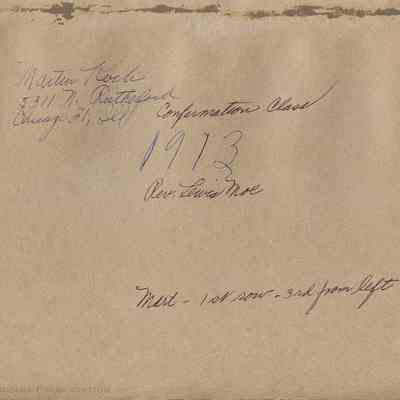 Martin Koch
5311 N. Rutherford
Chicago 31, Ill
Confirmation Class
1913
Rev. Lewis Moe
Mart - 1st row - 3rd from left